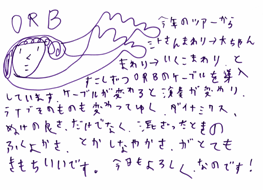 ORB
今年のツアーから
ミトさんまわり→大ちゃん
まわり→いくこまわり、と
すこしずつORBのケーブルを導入
しています。ケーブルが変わると演奏が変わり、
ライブそのものも変わってゆく。ダイナミクス、
ぬけの良さ、だけでなく、混ざったときの
ふくよかさ、とか しなやかさ、がとても
きもちいいです。今日もよろしく、なのです!